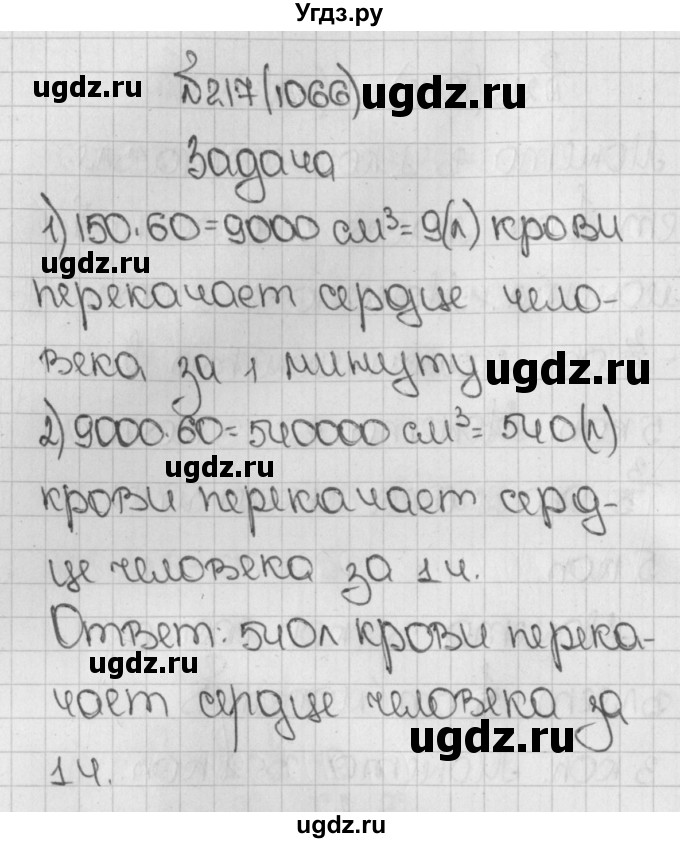 Угдз.ру
ugdz.ru №217(1066) ugdz.ru
Задача
1) 150·60=9000 см³=9(л) крови
ugdz.ru
перекачает сердце чело-
века за 1 минуту ugdz.ru
2) 9000·60=540000 см³=540(л)
ugdz.ru
крови перекачает серд-
це человека за 1ч.
Ответ: 540л крови перека-
ugdz.ru
чает сердце человека за
ugdz.ru
1ч.
ugdz.ru